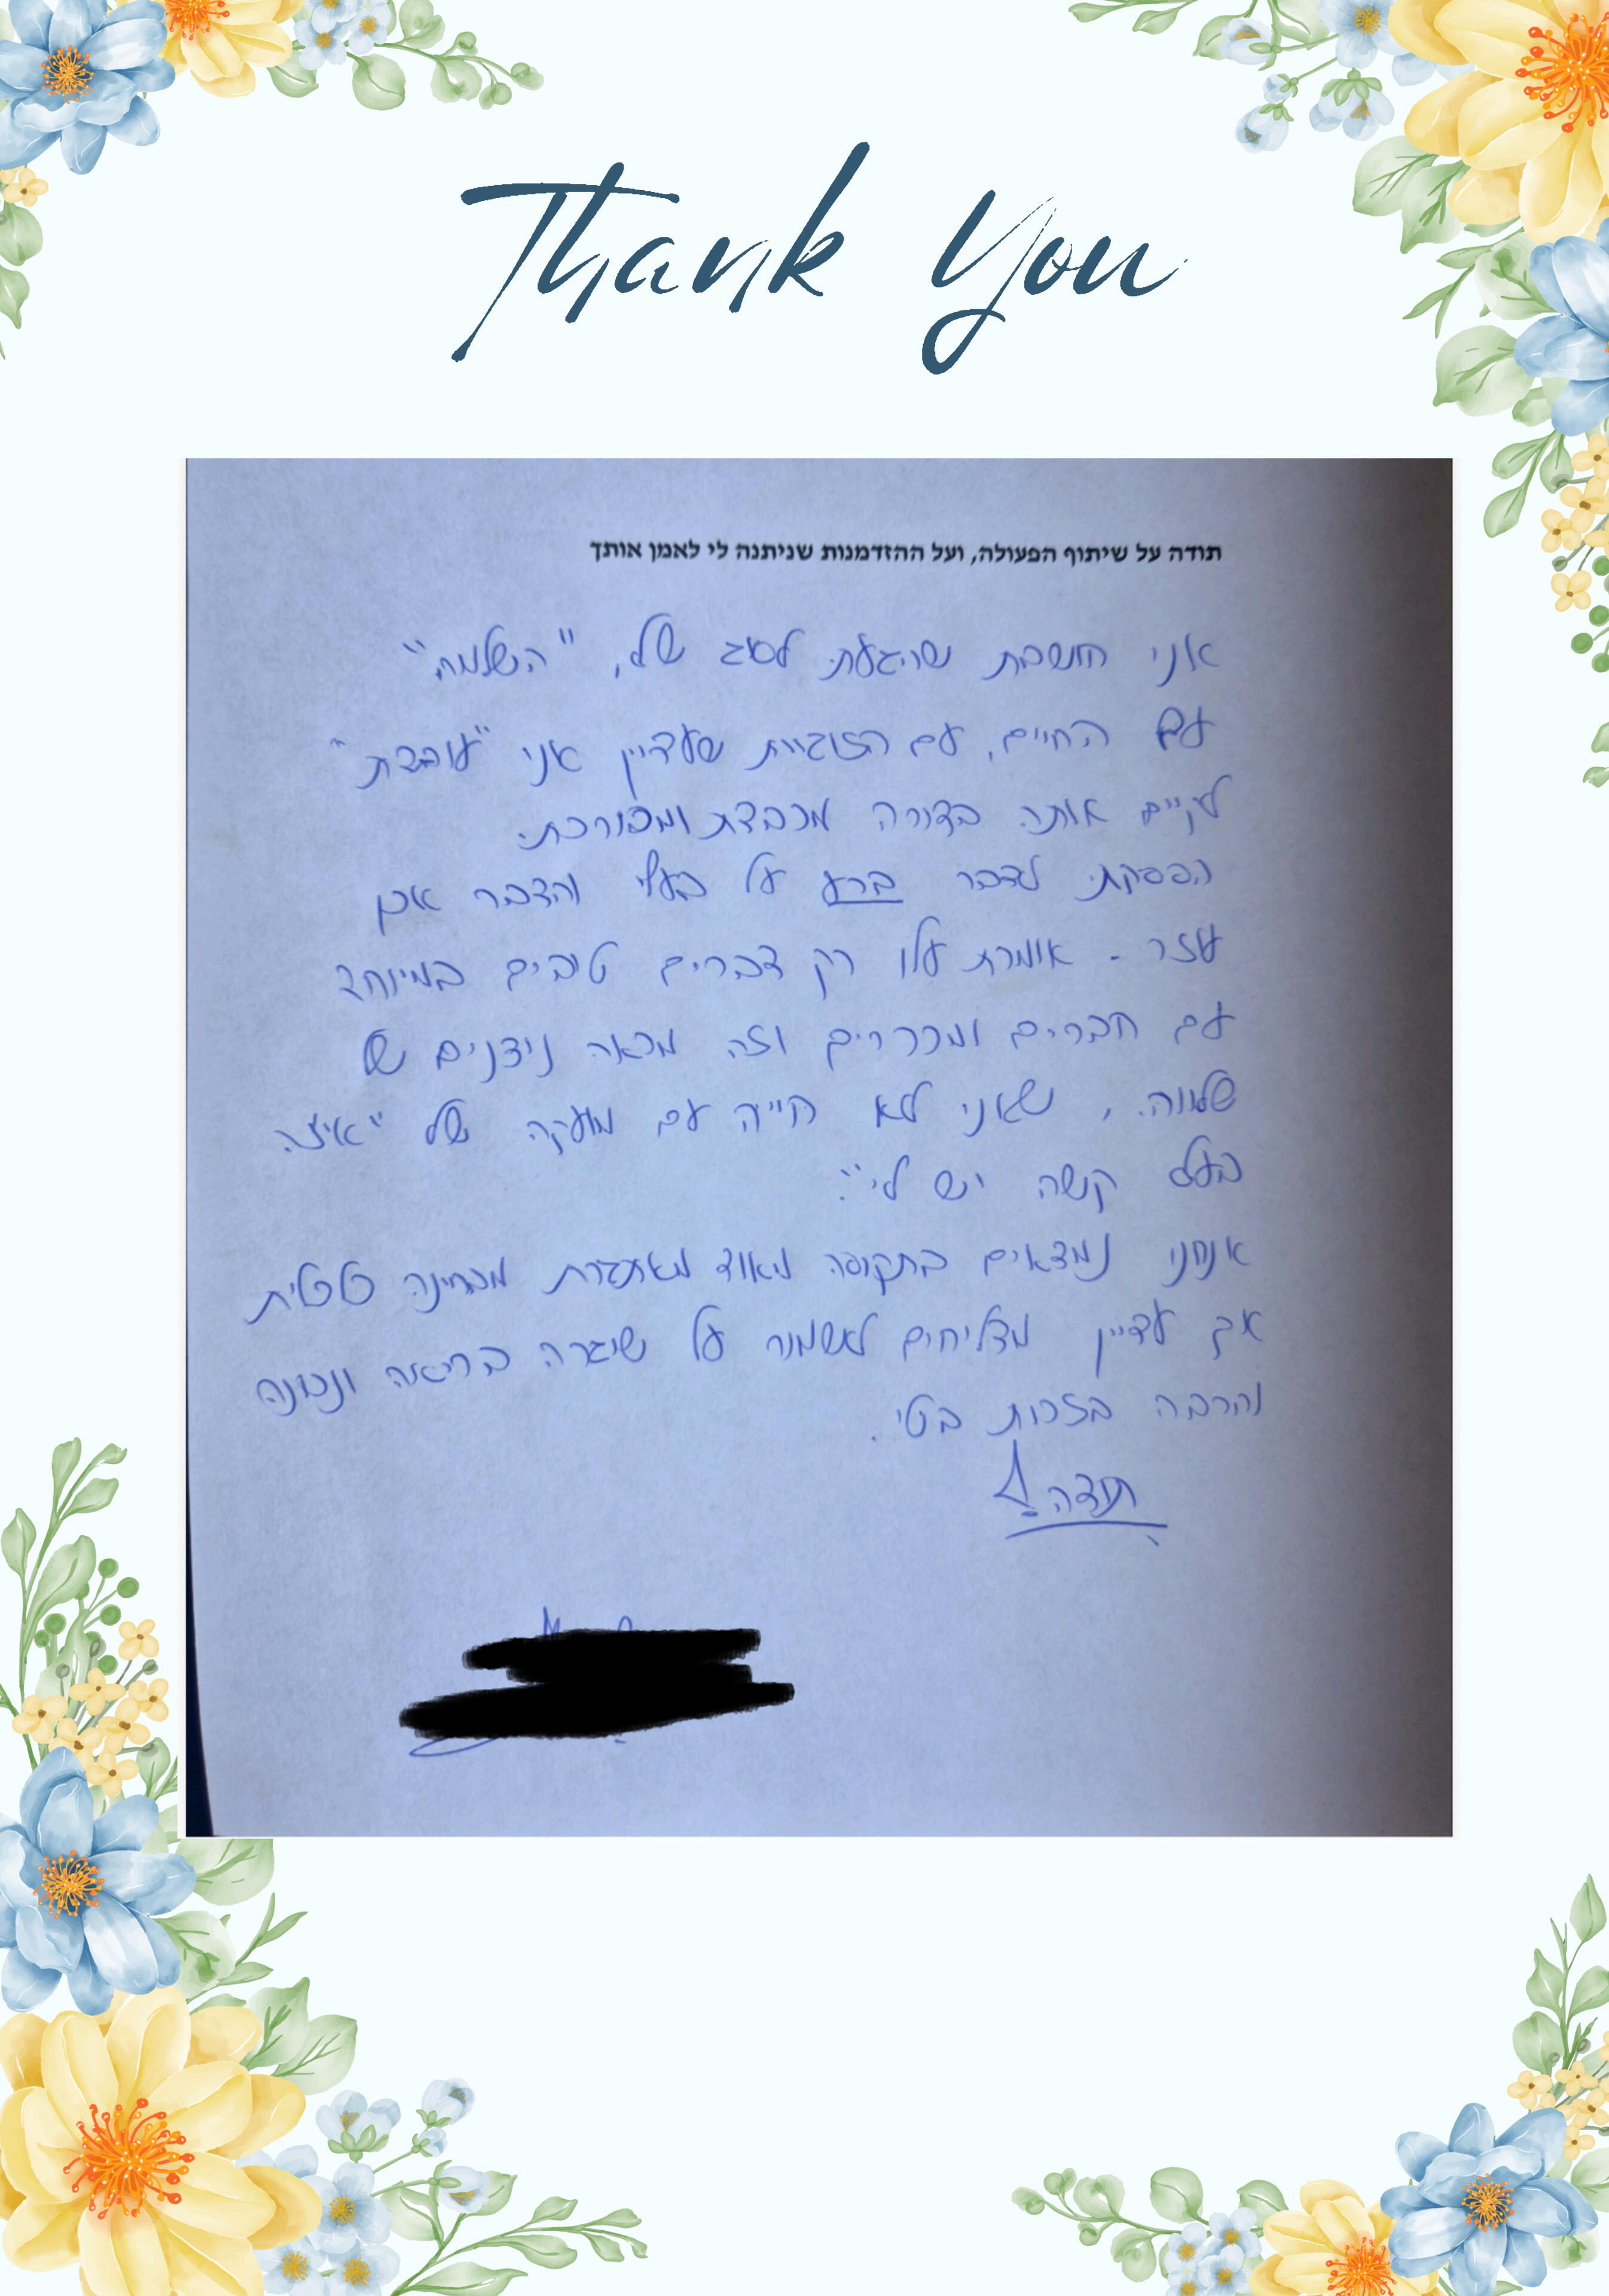 Thank You
תודה על שיתוף הפעולה, ועל ההזדמנות שניתנה לי לאמן אותך
אני חושבת שהגעתי לסוג של, "השלמה"
עם החיים, עם הזוגיות שעדיין אני "עובדת"
לקיים אותה בצורה מכבדת ומבורכת.
הפסקתי לדבר ברע על בעלי והדבר אכן
עזר - אומרת עליו רק דברים טובים במיוחד
עם חברים ומכרים וזה מראה ניצנים של
שלווה, שאני לא חייה עם מועקה של "איזה
בעל קשה יש לי".
אנחנו נמצאים בתקופה מאוד מאתגרת מבחינה
אך עדיין מצליחים לשמור על שיגרה בריאה ונכונה
והרבה בזכות בטי.
תודה!